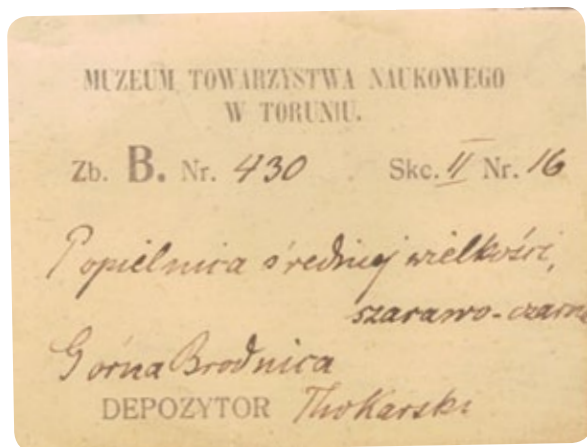 MUZEUM TOWARZYSTWA NAUKOWEGO
W TORUNIU.
Zb. B. Nr. 430 Skc. II Nr. 16
Popielnica średniej wielkości,
szarawo-czarna
Górna Brodnica
DEPOZYTOR Thokarski